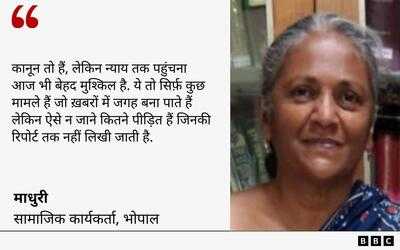 “
कानून तो हैं, लेकिन न्याय तक पहुंचना
आज भी बेहद मुश्किल है. ये तो सिर्फ़ कुछ
मामले हैं जो ख़बरों में जगह बना पाते हैं
लेकिन ऐसे न जाने कितने पीड़ित हैं जिनकी
रिपोर्ट तक नहीं लिखी जाती है.
माधुरी
सामाजिक कार्यकर्ता, भोपाल
BBC